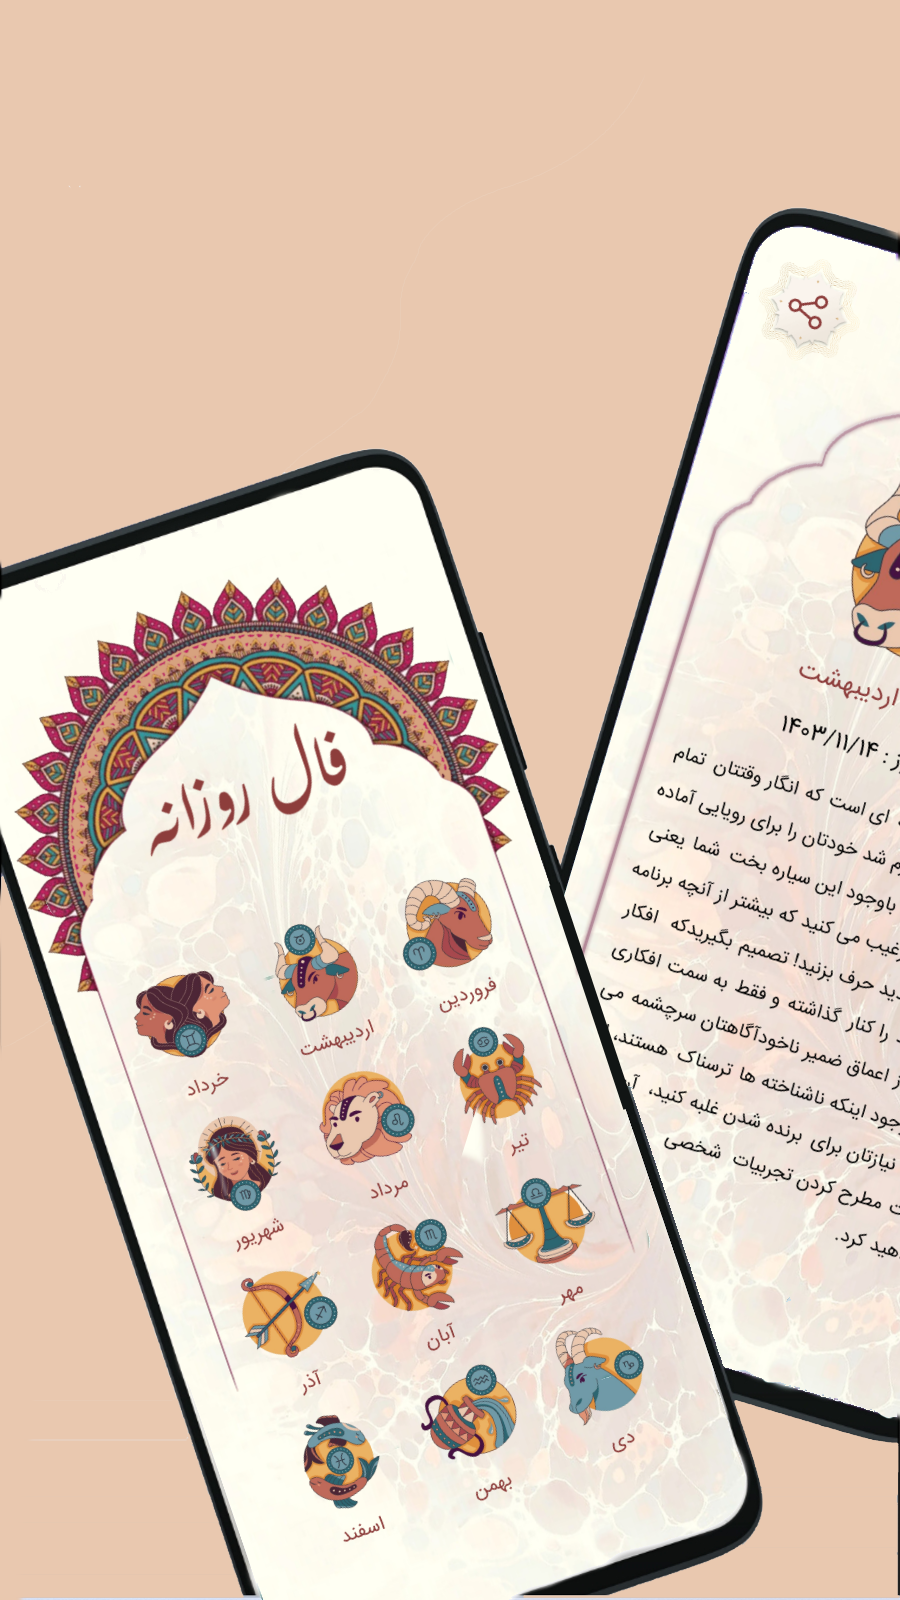 فال روزانه
فروردین
اردیبهشت
خرداد
تیر
مرداد
شهریور
مهر
آبان
آذر
دی
بهمن
اسفند
اردیبهشت
: ۱۴۰۳/۱۱/۱۴
ای است که انگار وقتتان تمام
شد خودتان را برای رویایی آماده
باوجود این سیاره بخت شما یعنی
می کنید که بیشتر از آنچه برنامه
حرف بزنید! تصمیم بگیریدکه افکار
را کنار گذاشته و فقط به سمت افکاری
اعماق ضمیر ناخودآگاهتان سرچشمه می
اینکه ناشناخته ها ترسناک هستند،
نیازتان برای برنده شدن غلبه کنید،
مطرح کردن تجربیات شخصی
کرد.